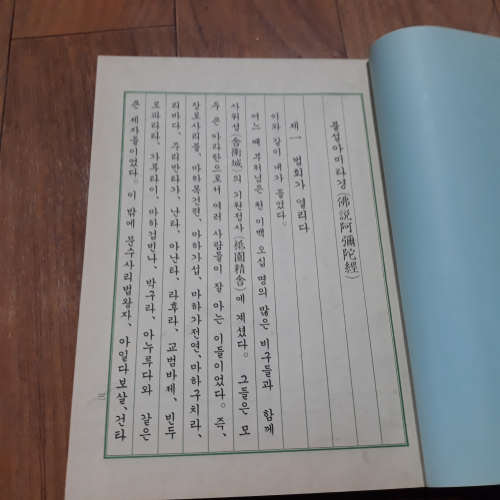 불설아미타경(佛説阿彌陀經)
제一 법회가 열리다
이와 같이 내가 들었다。
어느 때 부처님은 천 이백 오십 명의 많은 비구들과 함께
사위성(舍衛城)의 기원정사(祗園精舍)에 계셨다。 그들은 모
두 큰 아라한으로서 여러 사람들이 잘 아는 이들이었다。 즉、
장로사리불、마하목건련、마하가섭、마하가전연、마하구치라、
리바다、주리반타가、난타、아난타、라후라、교범바제、빈두
로파라타、가루타이、마하겁빈나、박구라、아누루다와 같은
큰 제자들이었다。 이 밖에 문수사리법왕자、아일다보살、건타